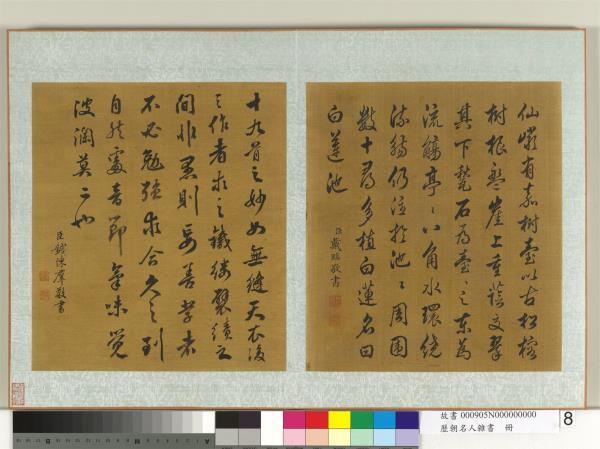 仙巖有嘉樹臺以古松榕
樹根盤崖上重蔭交翠
其下甃石為臺〻之東為
流觴亭〻八角水環繞
流觴仍注於池〻周圍
數十尋多植白蓮名曰
白蓮池
臣戴臨敬書
十九首之妙如無縫天衣後
之作者求之鐵縷襞績之
間非愚則妄善學者
不必勉強求合久之到
自然處音節氣味覺
波瀾莫二也
臣錢陳羣敬書
故書 000905N000000000
歷朝名人雜書 冊
8